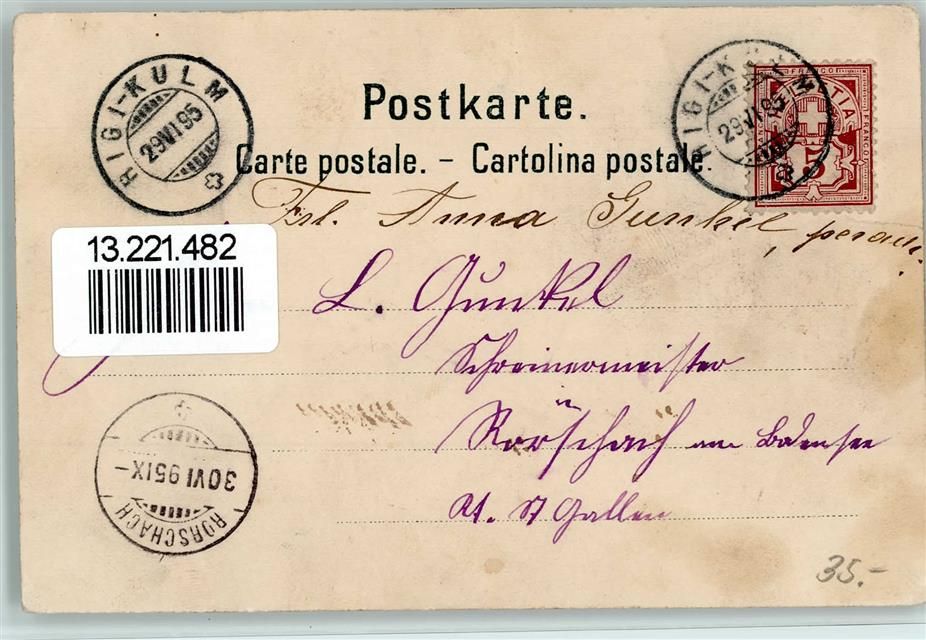 RIGI-KULM
29 VI 95
RIGI-KULM
29 VI 95
FRANCO
5
Postkarte.
Carte postale. – Cartolina postale.
Frl. Anna Gunkel,
13.221.482
L. Gunkel
Schreinermeister
Rorschach am Bodensee
Kt. St Gallen
30 VI 95 IX-
RORSCHACH
35.-